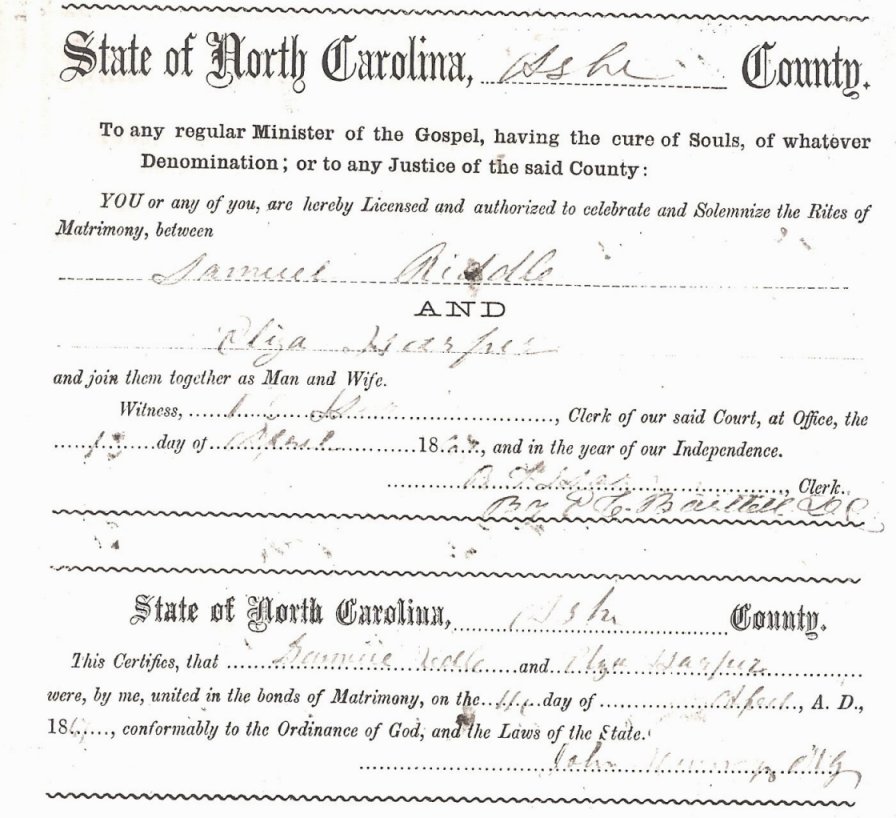 State of North Carolina, Ashe County.
To any regular Minister of the Gospel, having the cure of Souls, of whatever
Denomination; or to any Justice of the said County:
YOU or any of you, are hereby Licensed and authorized to celebrate and Solemnize the Rites of
Matrimony, between
Samuel Riddle
AND
Eliza Harper
and join them together as Man and Wife.
Witness, Clerk of our said Court, at Office, the
day of April 186, and in the year of our Independence.
Clerk.
By
State of North Carolina, Ashe County.
This Certifies, that and Elza Harper
were, by me, united in the bonds of Matrimony, on the day of April, A. D.,
186, conformably to the Ordinance of God, and the Laws of the State.
John MG